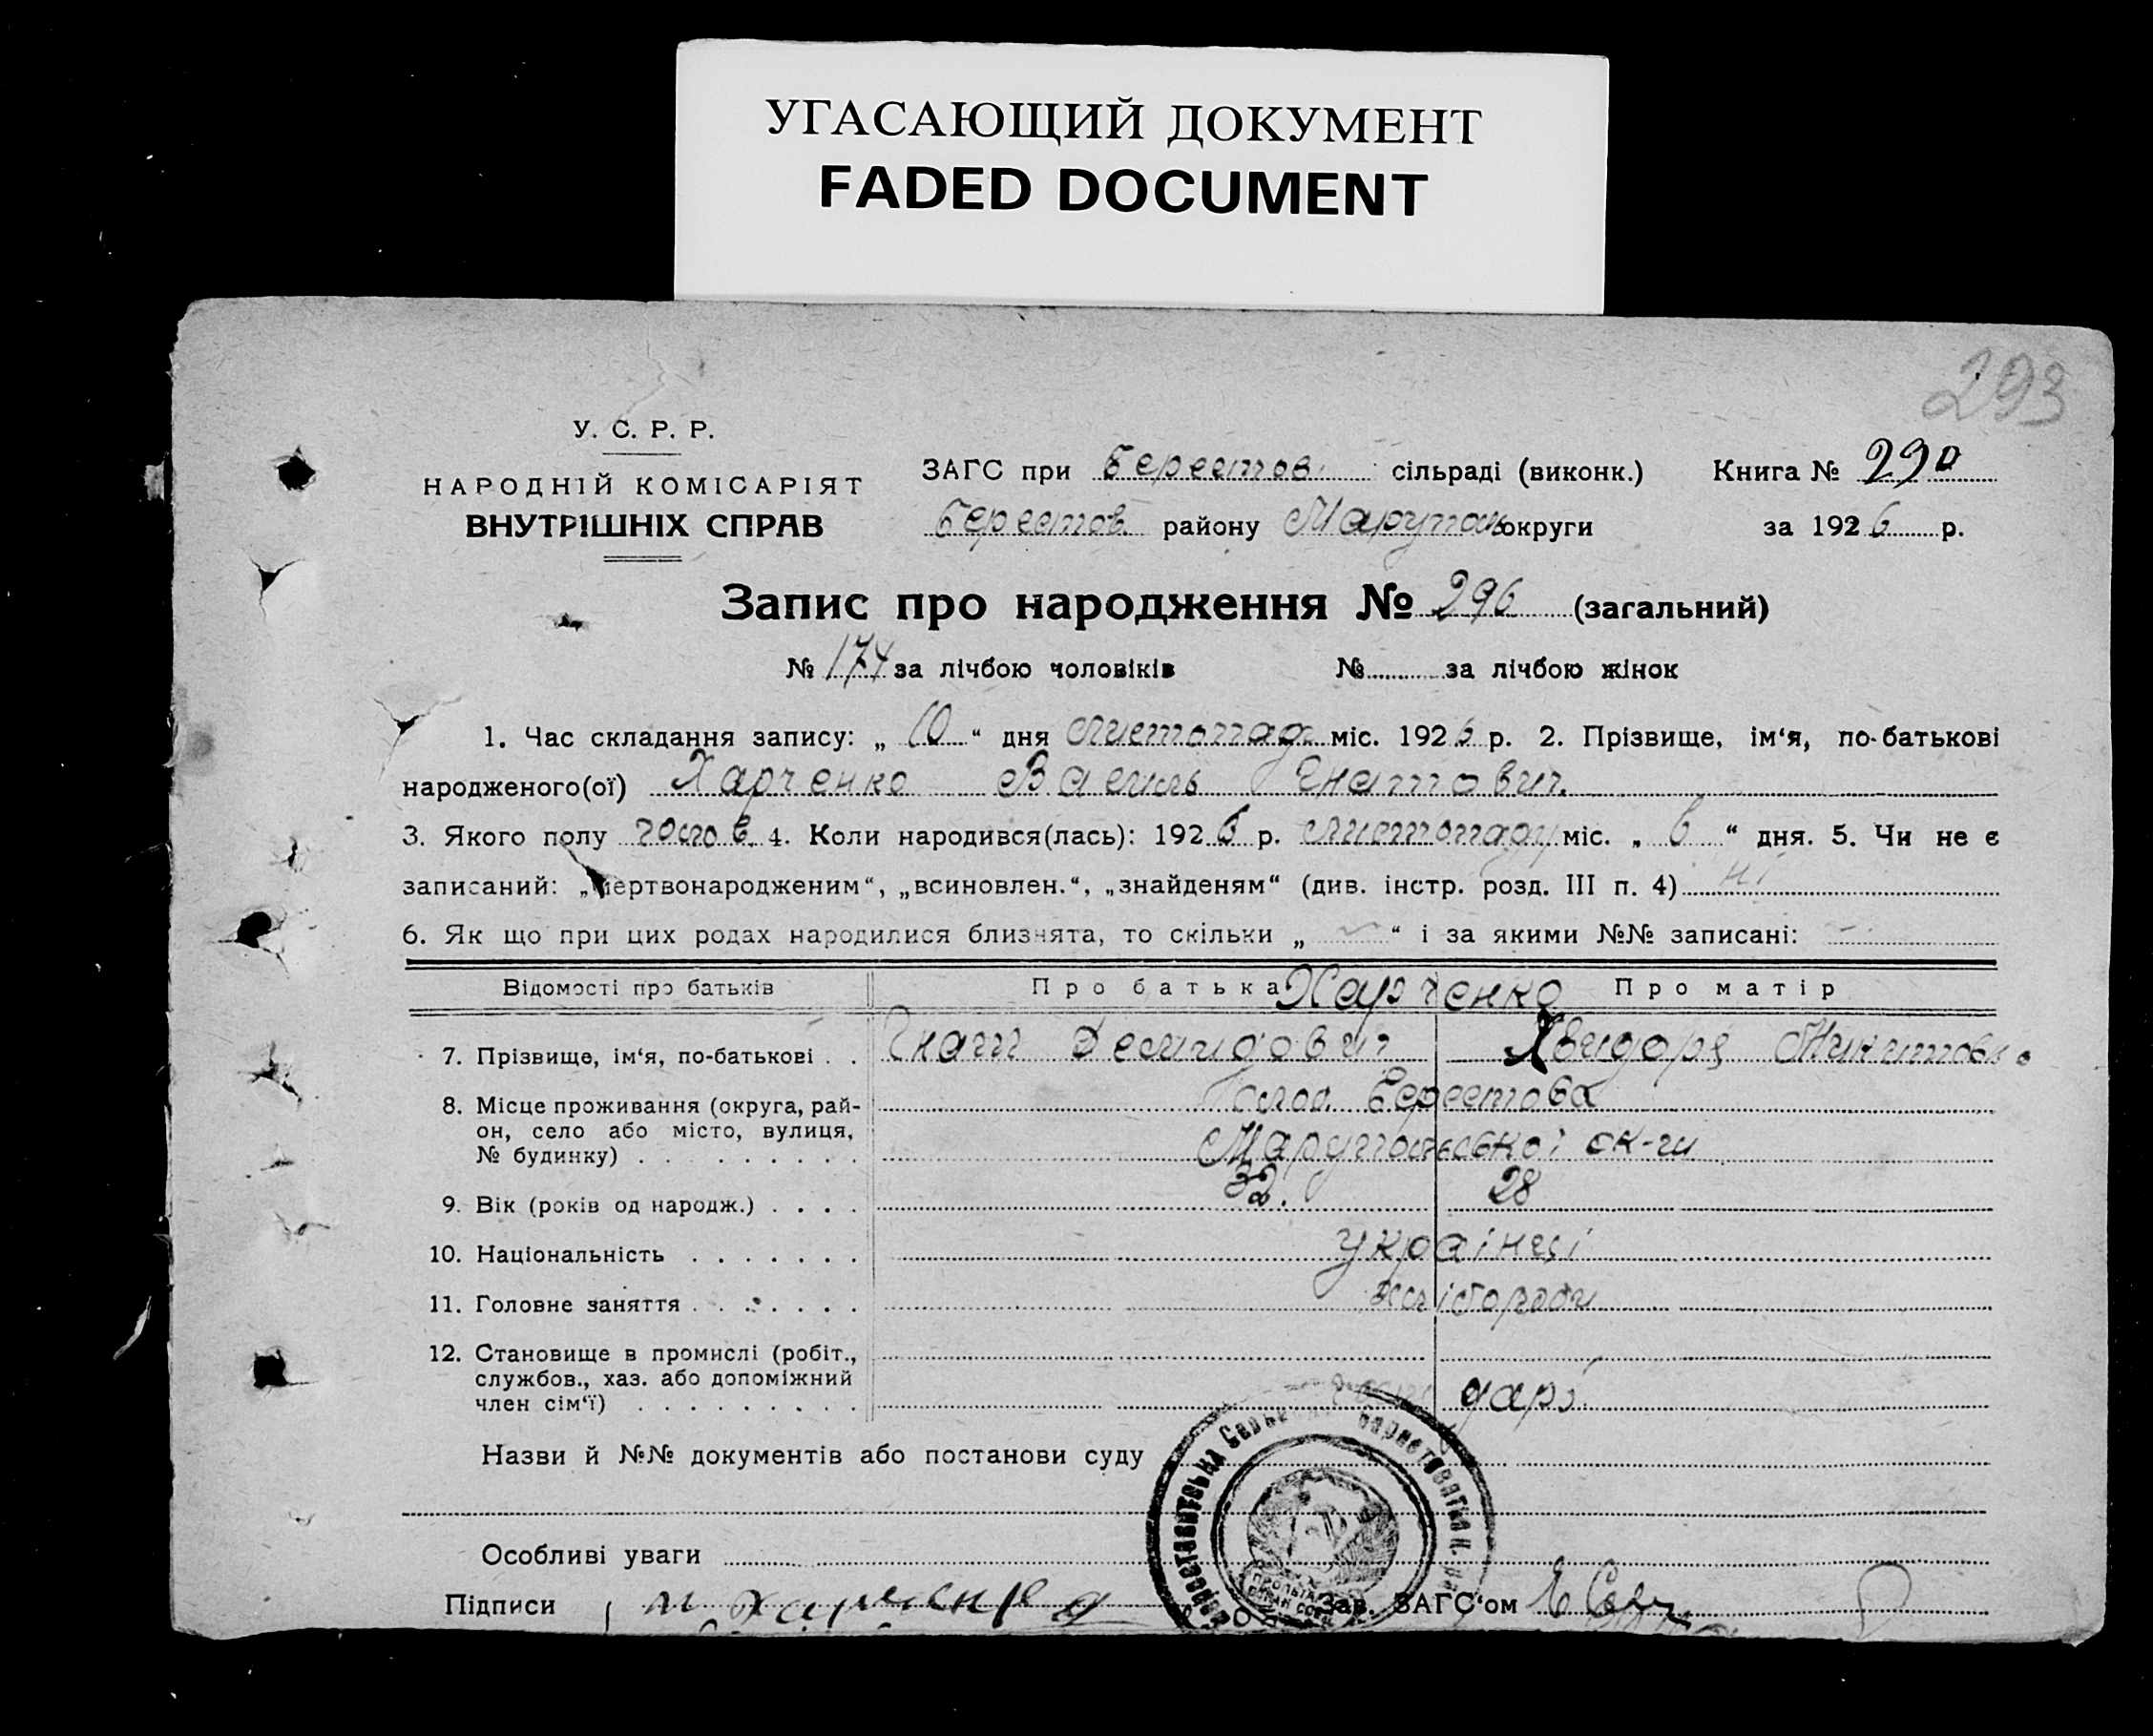 УГАСАЮЩИЙ ДОКУМЕНТ
FADED DOCUMENT
293
У. С. Р. Р.
НАРОДНІЙ КОМІСАРІЯТ
ВНУТРІШНІХ СПРАВ
ЗАГС при Берестов. сільраді (виконк.) Книга № 290
Берестов. району Маруполь округи за 1926 р.
Запис про народження № 296 (загальний)
№ 174 за лічбою чоловіків № за лічбою жінок
1. Час складання запису: „ 10 “ дня листопад міс. 1926 р. 2. Прізвище, ім‘я, по-батькові
народженого(ої) Харченко Василь Гнатович.
3. Якого полу чолов. 4. Коли народився(лась): 1926 р. листопаду міс. „ 6 “ дня. 5. Чи не є
записаний: „мертвонародженим“, „всиновлен.“, „знайденям“ (див. інстр. розд. III п. 4) ні
6. Як що при цих родах народилися близнята, то скільки „ — “ і за якими №№ записані: —
Відомості про батьків Про батька Харченко Про матір
7. Прізвище, ім‘я, по-батькові . . Гнат Демидович Хвидоря Микитовна
8. Місце проживання (округа, рай- Берестова
он, село або місто, вулиця, Марупольської ок-ги
№ будинку) . . . . . . . . .
9. Вік (років од народж.) . . . . 32. 28
10. Національність . . . . . . . українці
11. Головне заняття . . . . . . . хліборобы
12. Становище в промислі (робіт.,
службов., хаз. або допоміжний
член сім‘ї) . . . . . . . . . дарі.
Назви й №№ документів або постанови суду
Особливі уваги
Підписи Харченко Зав. ЗАГС‘ом